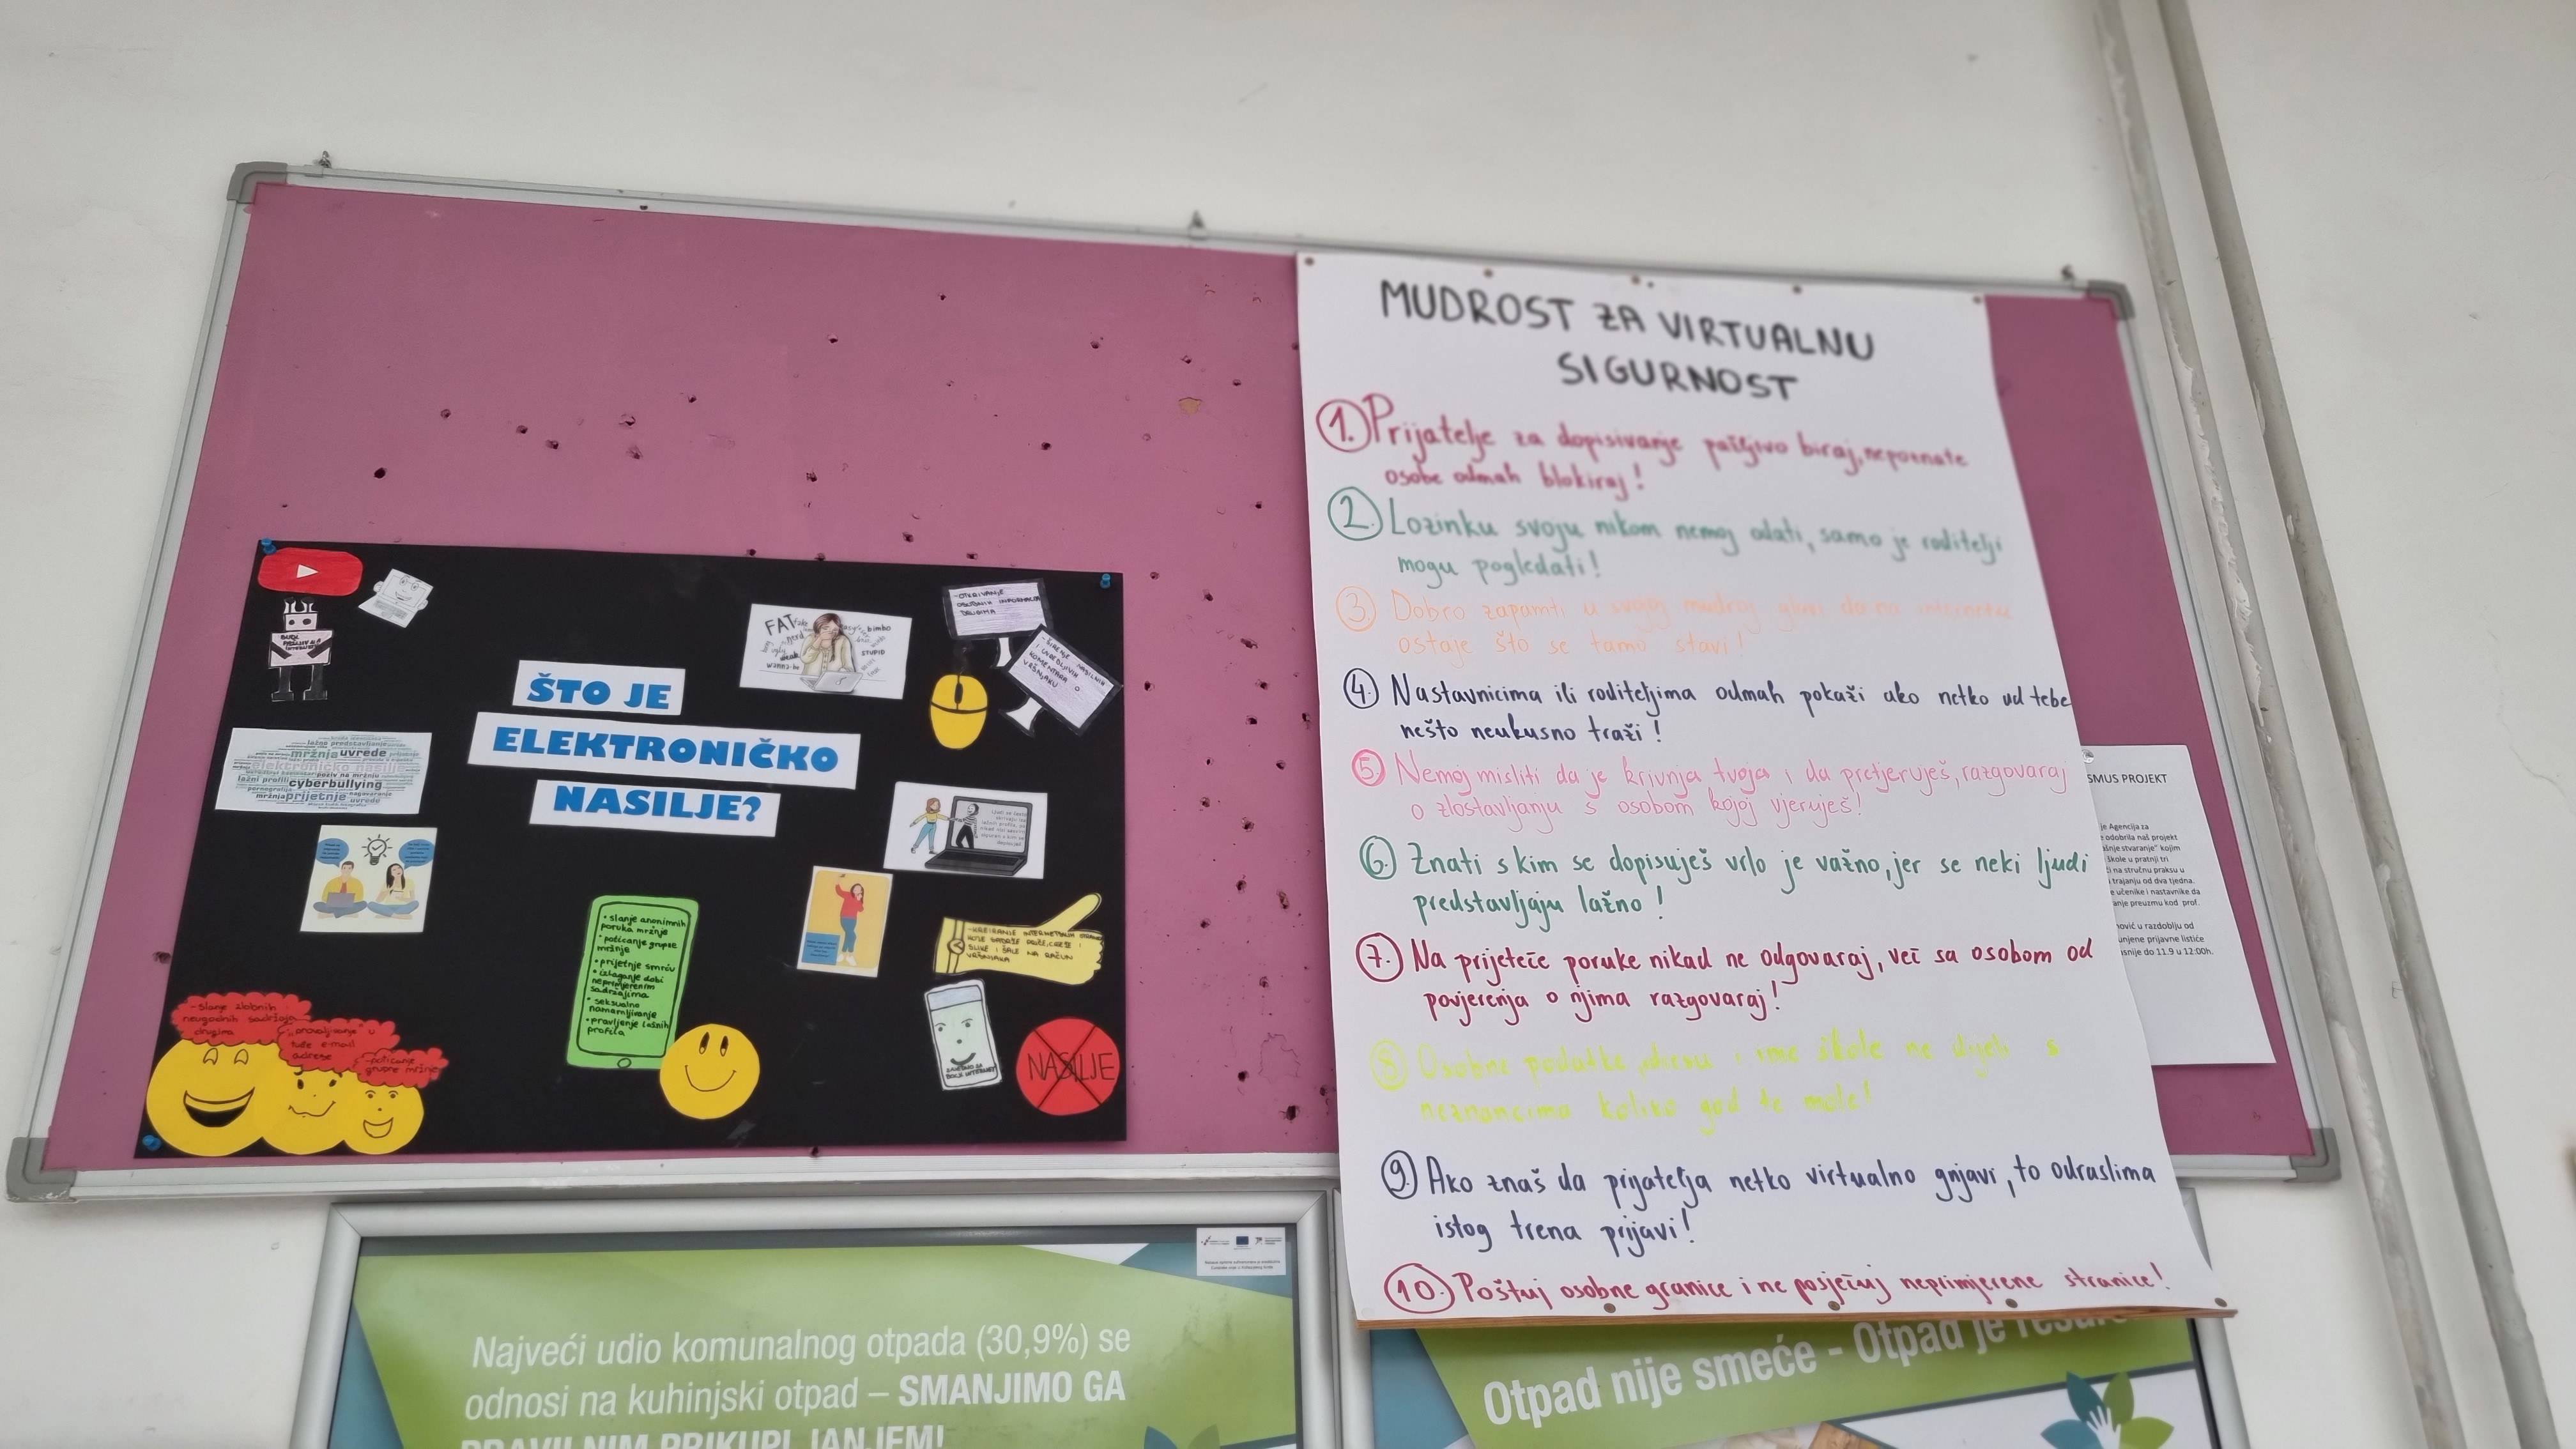 MUDROST ZA VIRTUALNU
SIGURNOST
1. Prijatelje za dopisivanje pažljivo biraj, nepoznate
osobe odmah blokiraj!
2. Lozinku svoju nikom nemoj odati, samo je roditelji
mogu pogledati!
3. Dobro zapamti u svojoj mudroj glavi da na internetu
ostaje što se tamo stavi!
4. Nastavnicima ili roditeljima odmah pokaži ako netko od tebe
nešto neukusno traži!
5. Nemoj misliti da je krivnja tvoja i da pretjeruješ, razgovaraj
o zlostavljanju s osobom kojoj vjeruješ!
6. Znati s kim se dopisuješ vrlo je važno, jer se neki ljudi
predstavljaju lažno!
7. Na prijeteće poruke nikad ne odgovaraj, već sa osobom od
povjerenja o njima razgovaraj!
8. Osobne podatke, adresu i ime škole ne dijeli s
neznancima koliko god te mole!
9. Ako znaš da prijatelja netko virtualno gnjavi, to odraslima
istog trena prijavi!
10. Poštuj osobne granice i ne posjećuj neprimjerene stranice!
ŠTO JE
ELEKTRONIČKO
NASILJE?
FAT
nerd
bimbo
STUPID
weak
wanna-be
-OTKRIVANJE
OSOBNIH INFORMACIJA
DRUGIMA
-ŠIRENJE NASILNIH
I UVREDLJIVIH
KOMENTARA O
VRŠNJAKU
lažno predstavljanje
mržnja uvrede
elektroničko nasilje
lažni profili poziv na mržnju
cyberbullying
pornografija
mržnja prijetnje
uvrede
• slanje anonimnih
poruka mržnje
• poticanje grupne
mržnje
• prijetnje smrću
• izlaganje dobi
neprimjerenim
sadržajima
• seksualno
namamljivanje
• pravljenje lažnih
profila
-KREIRANJE INTERNETSKIH STRANICA
KOJE SADRŽE PRIČE, CRTEŽE I
SLIKE I ŠALE NA RAČUN
VRŠNJAKA
-slanje zlobnih
neugodnih sadržaja
drugima
-"provaljivanje" u
tuđe e-mail
adrese
-poticanje
grupne mržnje
ZAJEDNO ZA
BOLJI INTERNET
NASILJE
SMUS PROJEKT
je Agencija za
odobrila naš projekt
stvaranje" kojim
škole u pratnji tri
na stručnu praksu u
trajanju od dva tjedna.
učenike i nastavnike da
preuzmu kod prof.
u razdoblju od
prijavne listiće
do 11.9 u 12:00h.
Najveći udio komunalnog otpada (30,9%) se
odnosi na kuhinjski otpad – SMANJIMO GA
PRAVILNIM PRIKUPLJANJEM!
Otpad nije smeće - Otpad je resurs